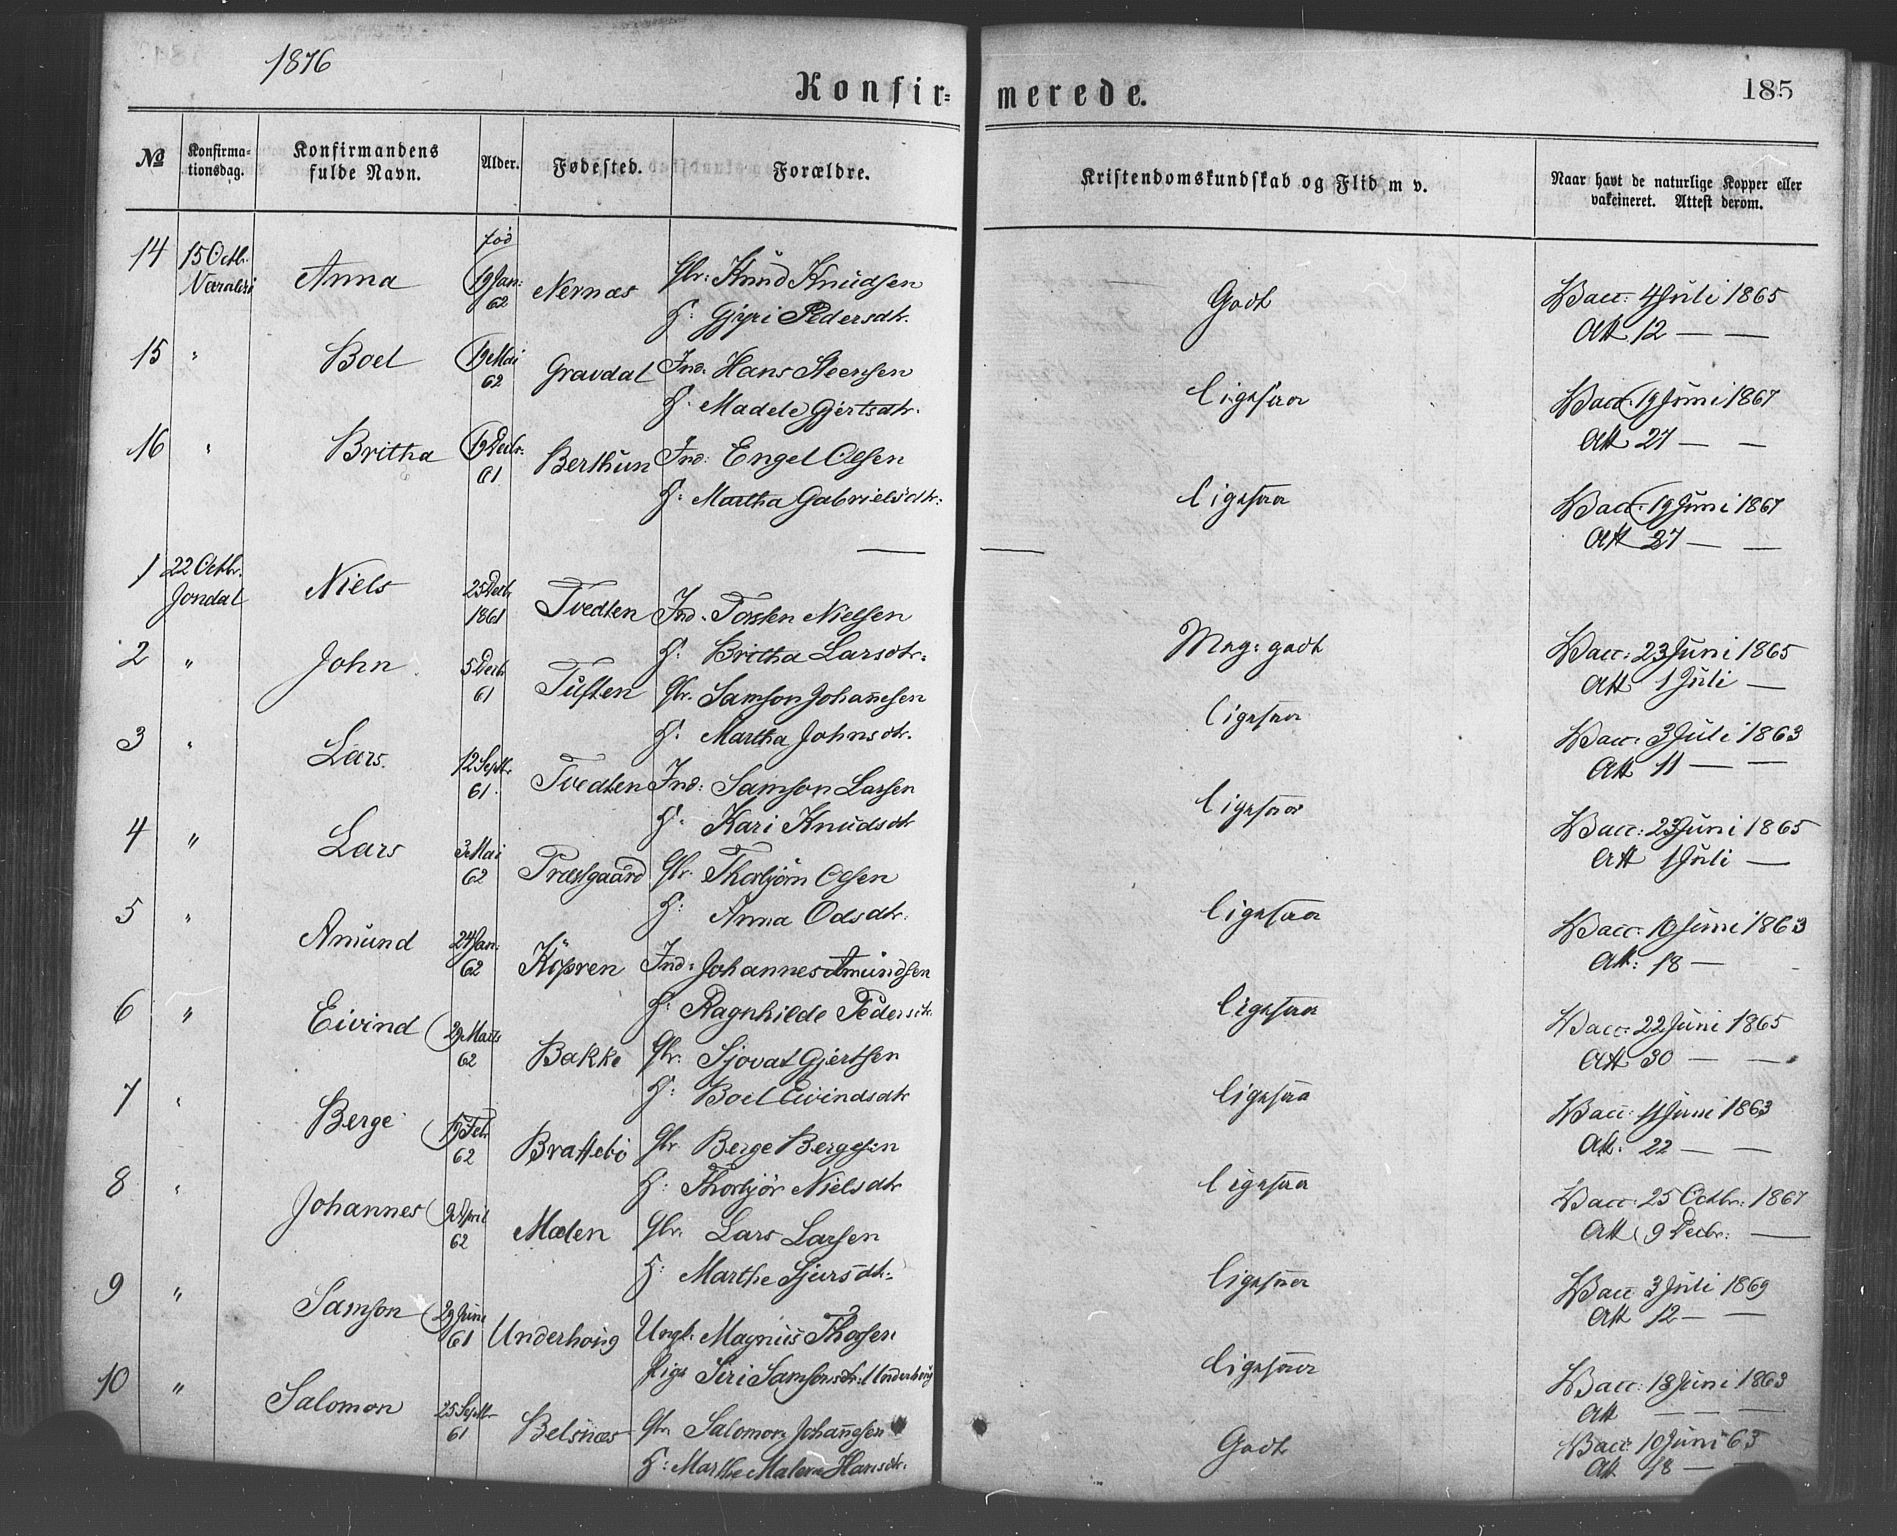 1876
Konfirmerede.
185
№ Konfirmationsdag. Konfirmandens fulde Navn. Alder. Fødested. Forældre. Kristendomskundskab og Flid m v. Naar havt de naturlige Kopper eller vakcineret. Attest derom.
14 15 Octb. Anna fød 19 Jan: 62 Nernæs Gbr: Knud Knudsen Godt Vacc: 4 Juli 1865
H: Gjyri Pedersdtr. Att 12 — —
15 " Boel 19 Mai 62 Gravdal Ind. Hans Steensen Ligesaa Vacc: 19 Juni 1867
H. Madele Gjertsdtr. Att 27 — —
16 " Britha 19 Decbr. 61 Berthun Ind: Engel Olsen Ligesaa Vacc: 19 Juni 1867
H: Martha Gabrielsdtr: Att 27 — —
1 22 Octbr. Jondal Niels 25 Decb 1861 Tvedten Ind. Torsten Nielsen Meg: godt Vacc: 23 Juni 1865
H. Britha Larsdtr: Att 1 Juli —
2 " John 5 Decbr 61 Tuften Gbr. Samson Johannesen Ligesaa Vacc: 3 Juli 1863
H. Martha Johnsdtr. Att 11 — —
3 " Lars. 12 Septbr 61. Tvedten Ind: Samson Larsen Ligesaa Vacc: 23 Juni 1865
H. Kari Knudsdtr Att 1 Juli —
4 " Lars 3 Mai 62 Præstgaard Gbr. Thorbjørn Olsen Ligesaa Vacc: 10 Juni 1863
H: Anna Odsdtr. Att: 18 —
5 " Amund 24 Jan: 62 Ind: Johannes Amundsen Ligesaa Vacc: 22 Juni 1865
H: Ragnhilde Pedersdtr. Att: 30 — —
6 " Eivind 29 Marts 62 Bakke Gbr. Sjovat Gjertsen Ligesaa Vacc: 11 Juni 1863
H: Boel Eivindsdtr Att: 22 — —
7 " Berge 19 Feb 62 Brattebø Gbr Berge Bergesen Ligesaa Vacc: 25 Octbr: 1867
H: Thorbjør Nielsdtr Att 9 Decbr: —
8 " Johannes 9 April 62 Mælen Gbr. Lars Larsen Ligesaa Vacc 3 Juli 1869
H: Marthe Sjursdtr: Att 12 — —
9 " Samson 29 Juni 61 Underhoug Ungk. Magnus Ligesaa Vacc: 18 Juni 1863
Pige Siri Samsonsdtr: Underhoug Att — — —
10 " Salomon 25 Septbr 61 Belsnæs Gbr. Salomon Johannesen Godt Vacc: 10 Juni 63
H: Marthe Malene Hansdtr. Att 18 — —